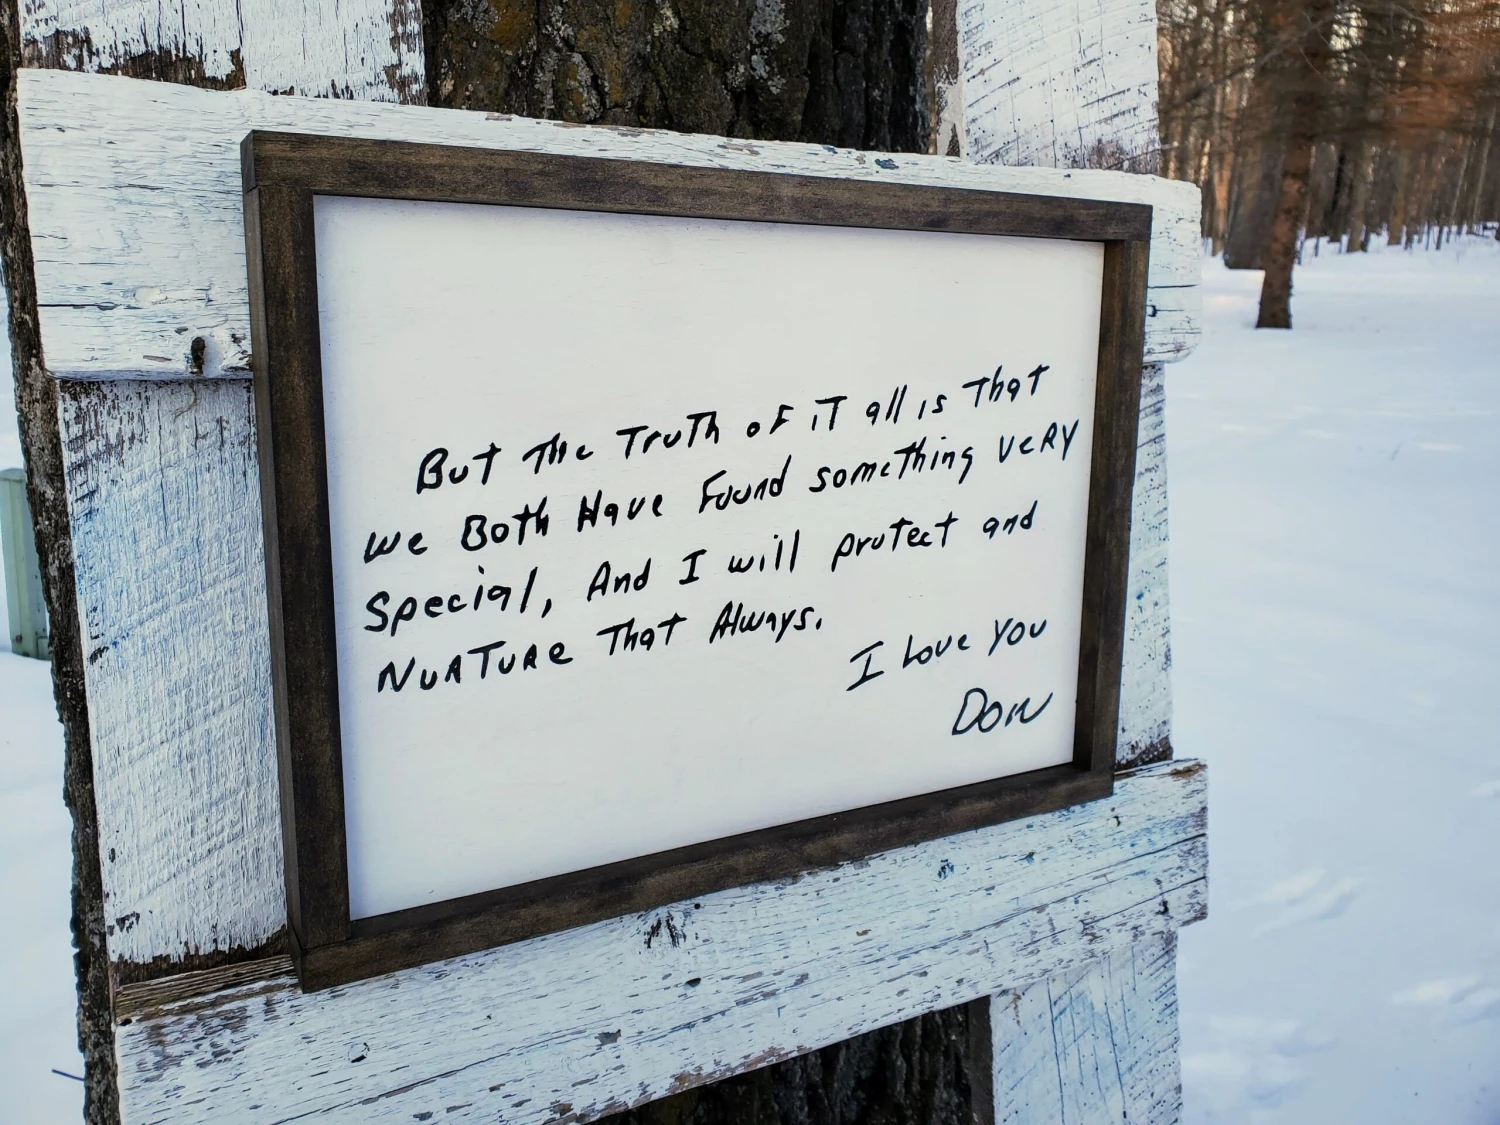 But The Truth of iT all is That
we Both Have Found something veRy
Special, And I will protect and
NuRTuRe That Always.
I Love You
Don